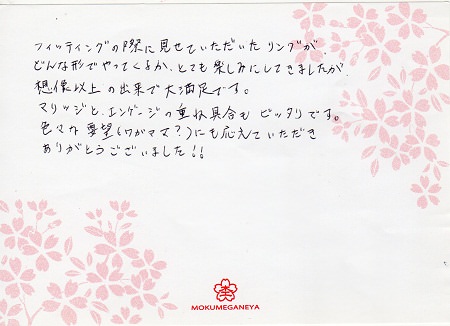 フィッティングの際に見せていただいたリングが、
どんな形でやってくるか、とても楽しみにしてきましたが、
想像以上の出来で大満足です。
マリッジと、エンゲージの重ね具合も ピッタリです。
色々な要望(ワガママ?)にも応えていただき
ありがとうございました!!
MOKUMEGANEYA